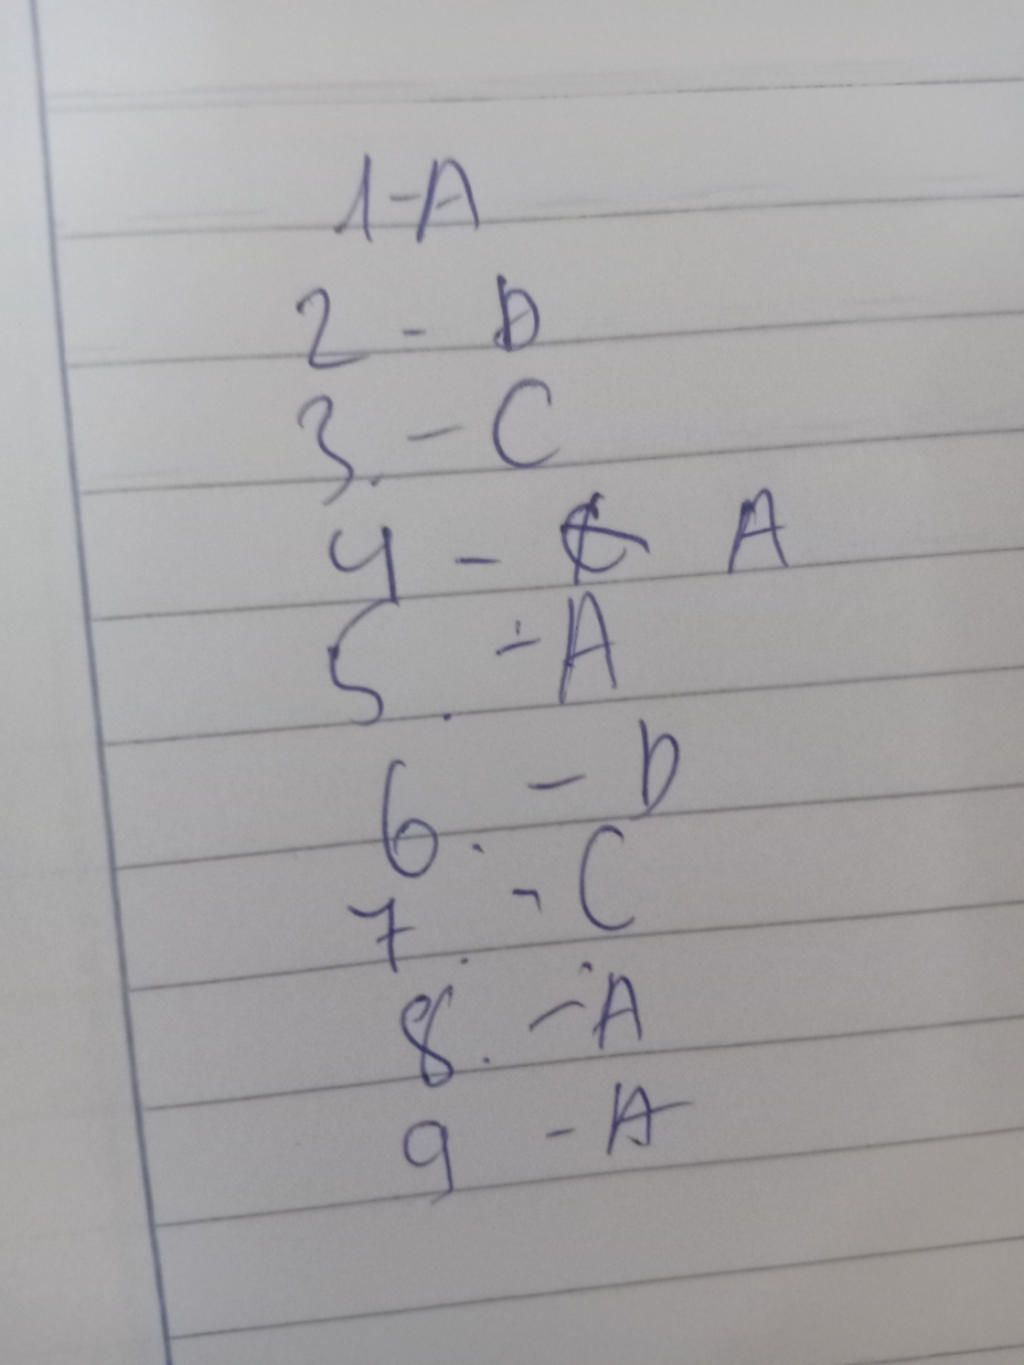 1-A
2 - D
3. - C
4 - C A
5. - A
6. - D
7. - C
8. - A
9 - A